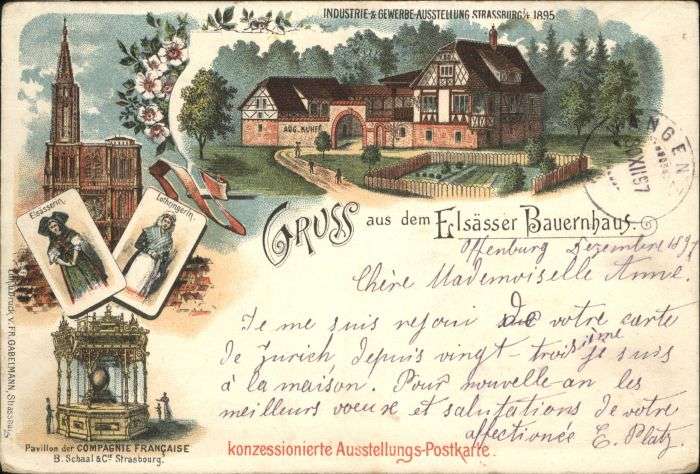 INDUSTRIE- & GEWERBE-AUSSTELLUNG STRASSBURG i/E 1895
AUG. KUHFF
Elsässerin.
Lothringerin.
NGEN
XII 97
GRUSS aus dem Elsässer Bauernhaus.
Offenburg Dezembre 189
Chère Mademoiselle Anne.
Je me suis rejoui de votre carte
de Zurich depuis vingt-troisième je suis
à la maison. Pour nouvelle an les
meilleurs voeux et salutations de votre
affectionée E. Platz.
konzessionierte Ausstellungs-Postkarte.
Pavillon der COMPAGNIE FRANÇAISE
B. Schaal & Cie Strasbourg.
v. FR. GABELMANN, Strassburg